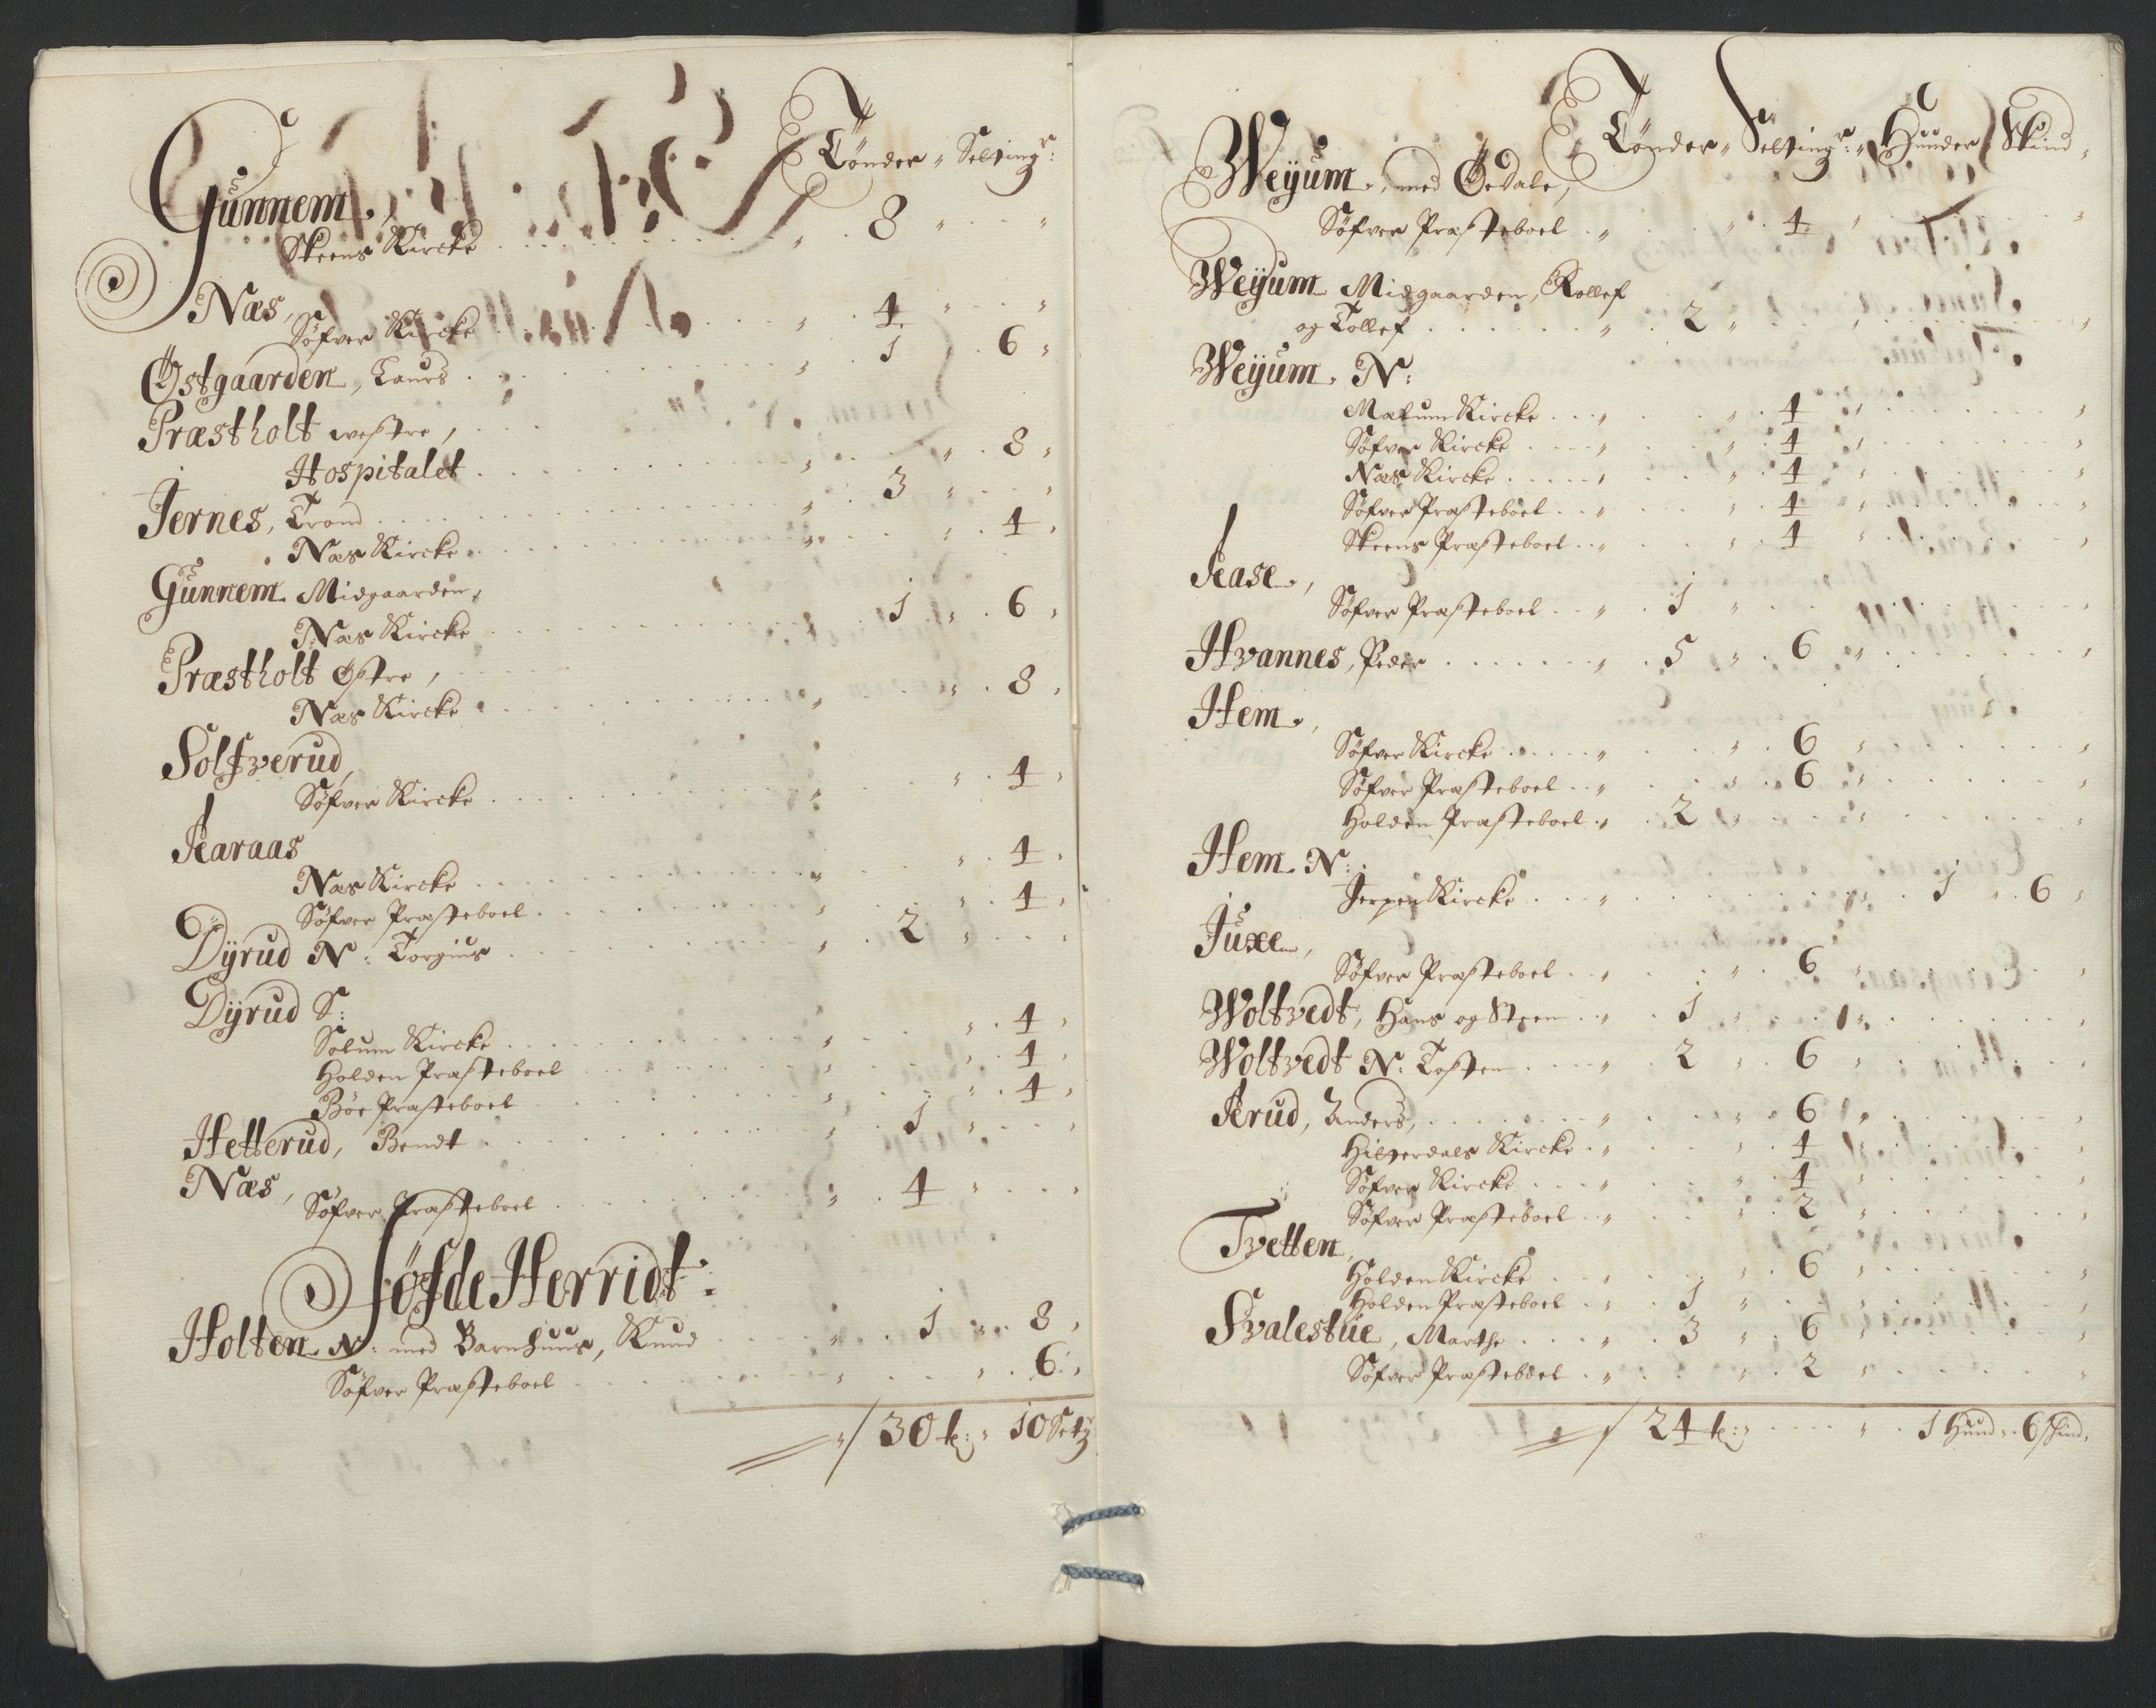 Tønder „ Setting:
Gunnem,
Skeens Kircke . . . „ 8 „ „
Næs,
Søfver Kircke . . . „ 4 „ „
Østgaarden, Laurs . . . „ 1 „ 6 „
Præstholt westre,
Hospitalet . . . „ „ 8 „
Jernes, Trond . . . „ 3 „ „
Næs Kircke . . . „ „ 4 „
Gunnem Midgaarden,
Næs Kircke . . . 1 „ 6 „
Præstholt Østre,
Næs Kircke . . . „ „ 8 „
Solfverud,
Søfver Kircke . . . „ „ 4 „
Aaraas
Næs Kircke . . . „ „ 4 „
Søfver Præsteboel . . . „ „ 4 „
Dyrud N: Torgius . . . „ 2 „ „
Dyrud S:
Solum Kircke . . . „ „ 4 „
Holden Præsteboel . . . „ „ 4 „
Böe Præsteboel . . . „ „ 4 „
Hetterud, Bendt . . . „ 1 „ „
Næs,
Søfver Præsteboel . . . „ 4 „ „
Søfde Herridt:
Holten N: med Barnhuus, Knud . . . „ 1 „ 8 „
Søfver Præsteboel . . . „ „ 6 „
30 t: „ 10 Setg
Tønder „ Setting: „ Huuder „ Skind „
Weyum, med Ødale,
Søfver Præsteboel . „ „ 4 „ „
Weyum Midgaarden, Rollef
og Tollef . . . „ 2 „ „ „
Weyum N:
Mælum Kircke . . „ „ 4 „ „
Søfver Kircke . . „ „ 4 „ „
Næs Kircke . . . „ „ 4 „ „
Søfver Præsteboel . . „ „ 4 „ „
Skeens Præsteboel . . „ „ 4 „ „
Aase,
Søfver Præsteboel . . „ 1 „ „
Hvannes, Peder . . . „ 5 „ 6 „ „
Hem,
Søfver Kircke . . . „ „ 6 „ „
Søfver Præsteboel . . „ „ 6 „ „
Holden Præsteboel . „ 2 „ „ „
Hem N:
Jerpen Kircke . . . „ „ 1 „ 6 „
Juxe,
Søfver Præsteboel . . „ „ 6 „ „
Woltvedt, Hans og Steen . „ 1 „ „ „
Woltvedt N: Tosten . . . „ 2 „ 6 „ „
Aerud, Anders, . . . „ „ 6 „ „
Hitterdals Kircke . „ „ 4 „ „
Søfver Kircke . . . „ „ 4 „ „
Søfver Præsteboel . . „ „ 2 „ „
Tvetten,
Holden Kircke . . „ „ 6 „ „
Holden Præsteboel . „ 1 „ „ „
Svalestue, Marthe . . . „ 3 „ 6 „ „
Søfver Præsteboel . „ „ 2 „ „
24 t: „ „ 1 Huud „ 6 skind „